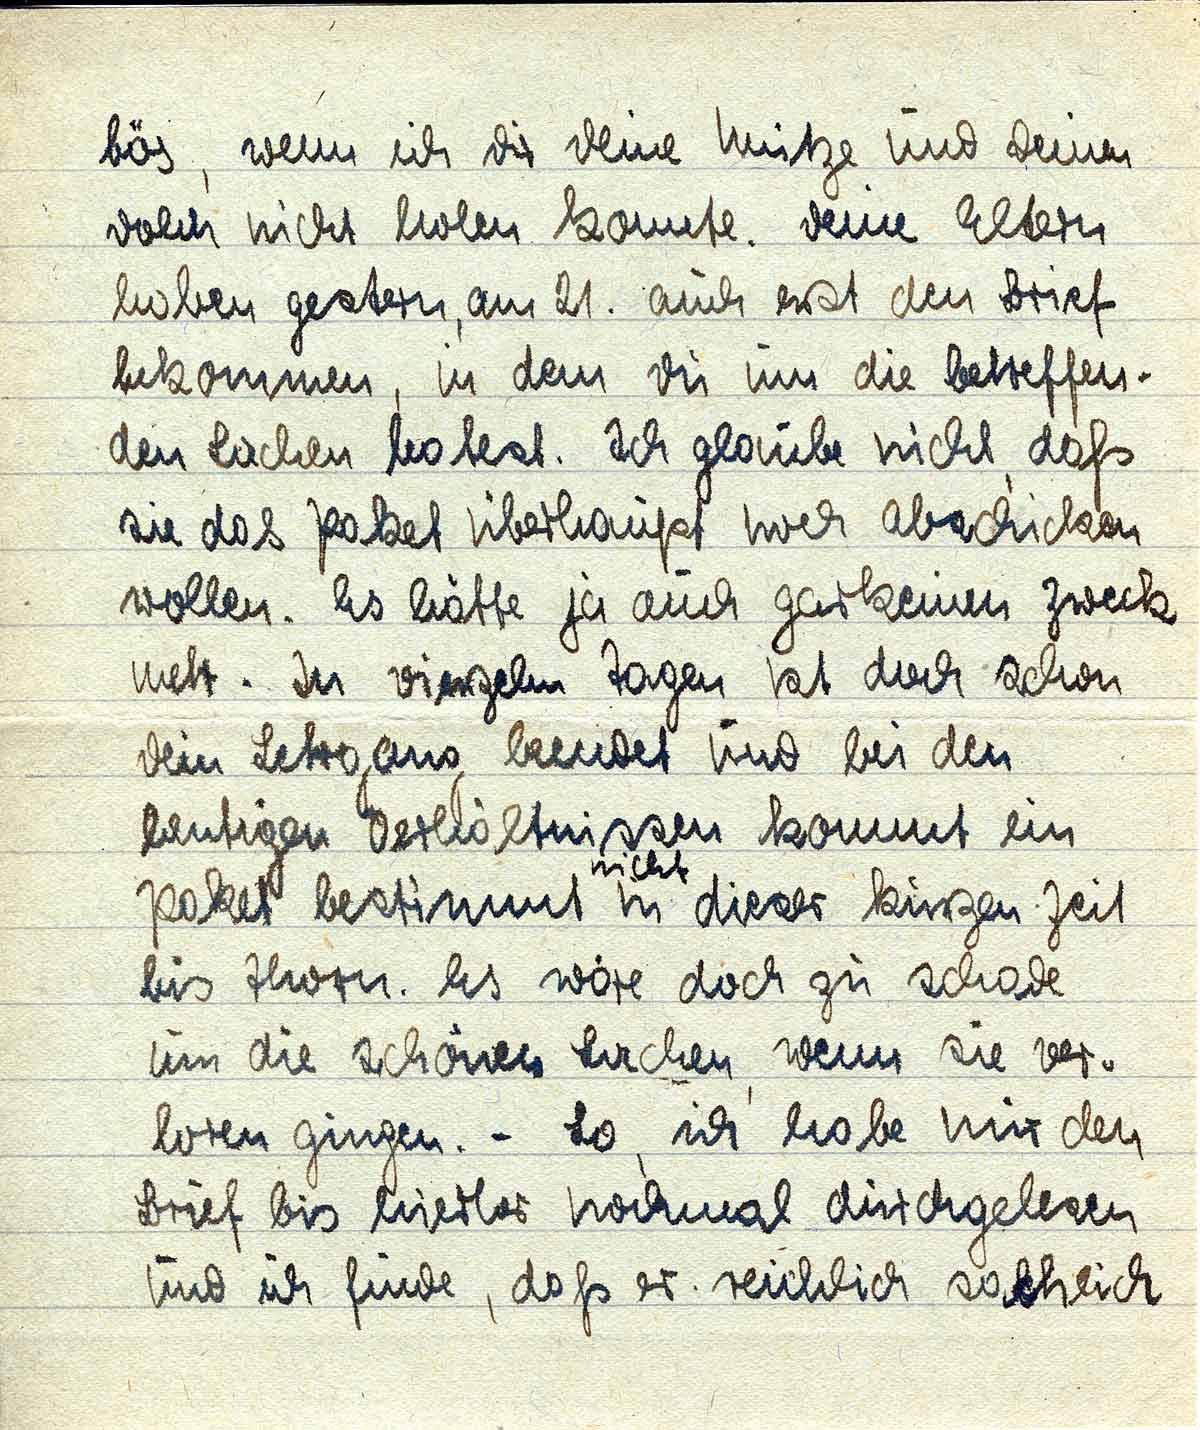 bös, wenn ich dir deine Mütze und deinen
Dolch nicht holen konnte. Deine Eltern
haben gestern, am 21. auch erst den Brief
bekommen, in dem du um die betreffen-
den Sachen batest. Ich glaube nicht, daß
sie das Paket überhaupt noch abschicken
wollen. Es hätte ja auch garkeinen Zweck
mehr. In vierzehn Tagen ist doch schon
dein Lehrgang beendet und bei den
heutigen Verhältnissen kommt ein
Paket bestimmt nicht in dieser kurzen Zeit
bis Thorn. Es wäre doch zu schade
um die schönen Sachen, wenn sie ver-
loren gingen. - So, ich habe mir den
Brief bis hierher nochmal durchgelesen
und ich finde, daß er reichlich sachlich